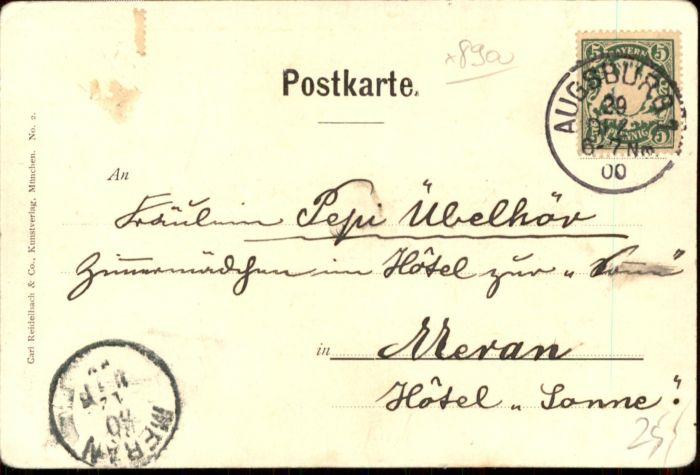 ×89a
Postkarte.
5 BAYERN 5
5 PFENNIG 5
AUGSBURG 1
29
6-7 Nm.
00
An
Fräulein Pepi Übelhör
Zimmermädchen im Hôtel zur „Sonne“
in Meran
Hôtel „Sonne“.
MERAN
Carl Reidelbach & Co., Kunstverlag, München. No. 2.